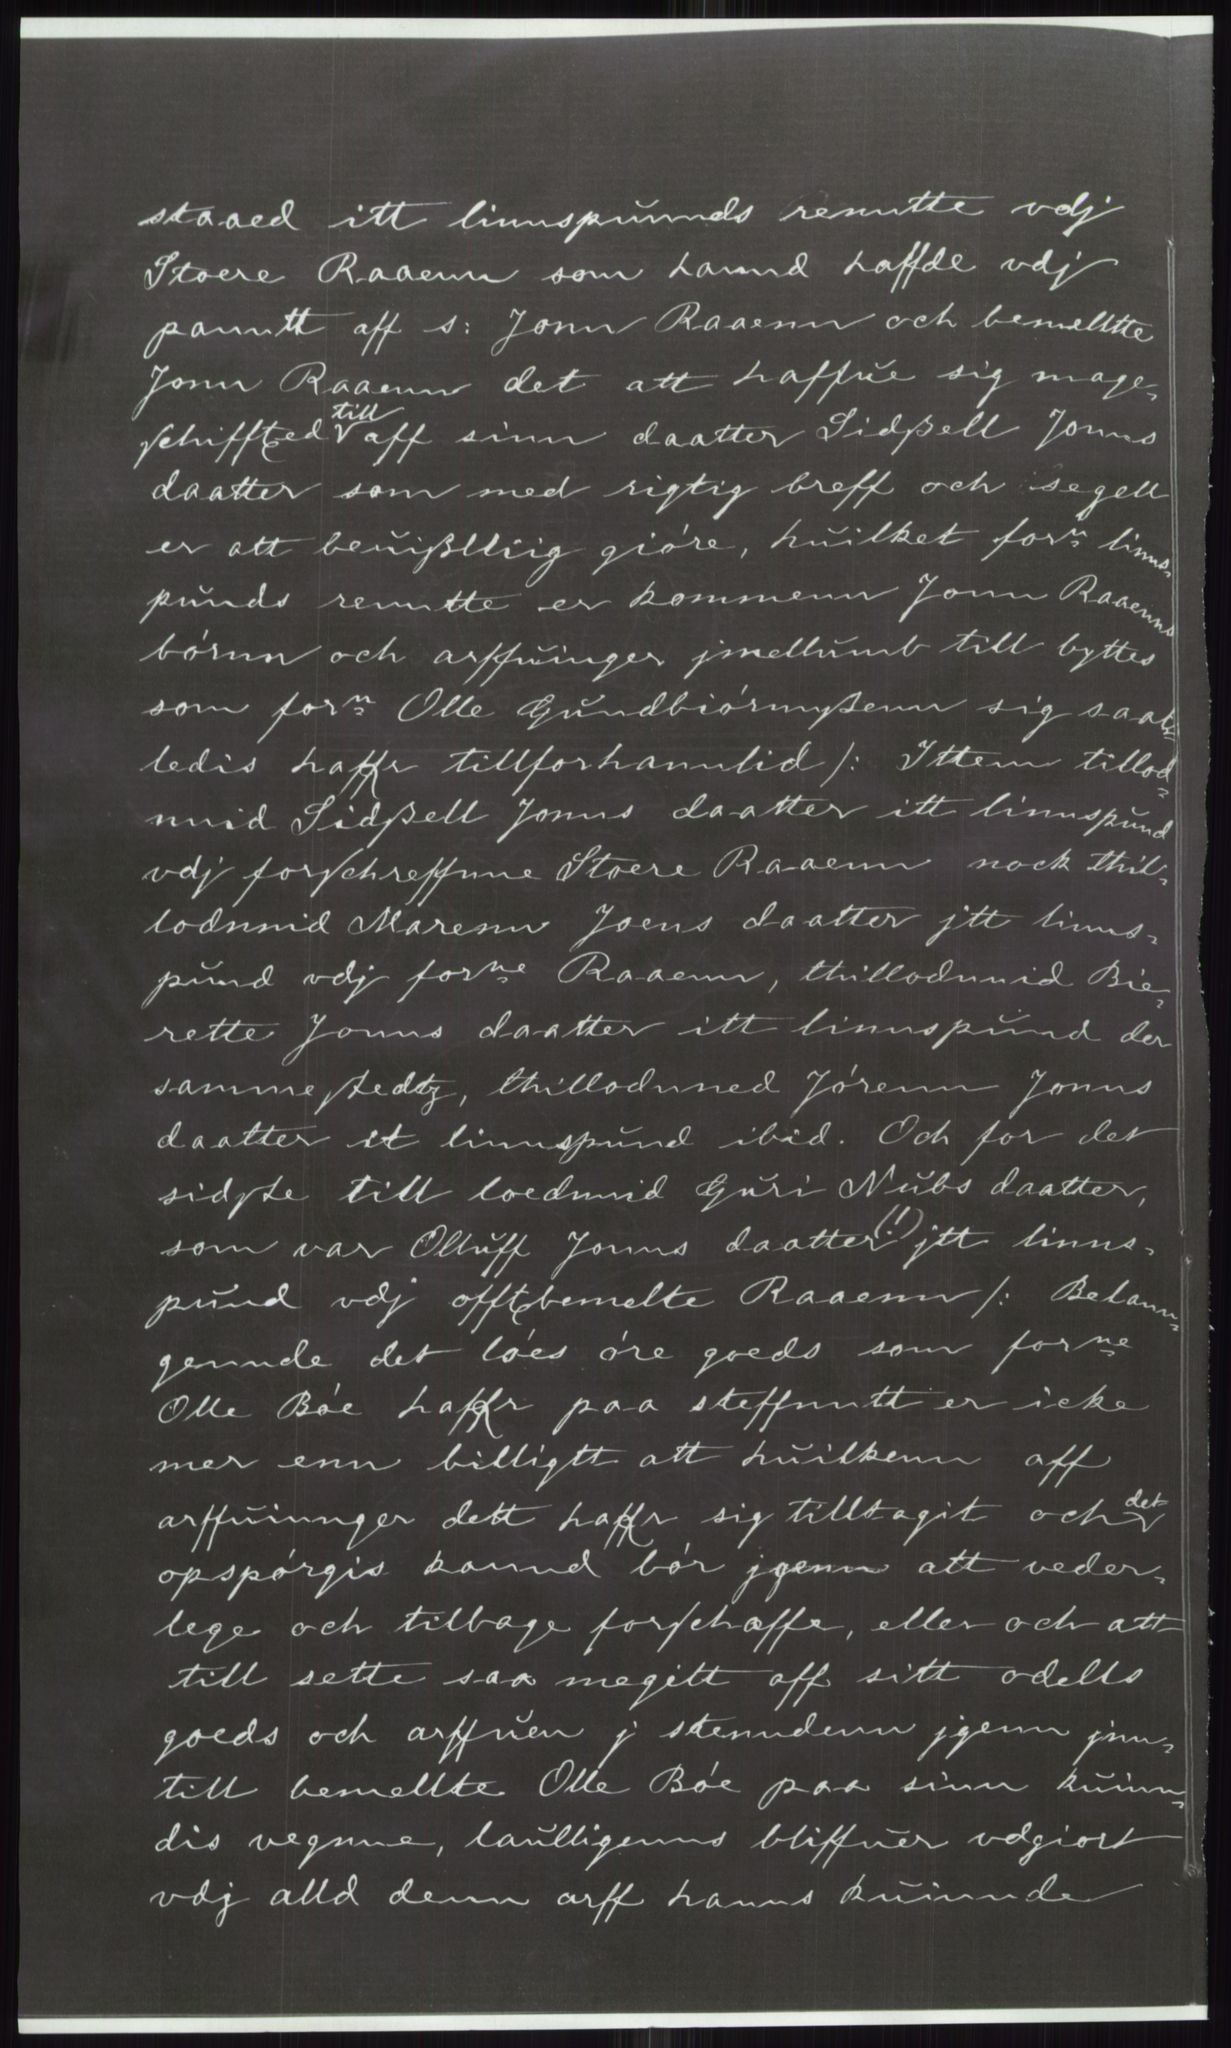 staaed itt linnspŭnnds renntte vdj
Stoere Raaenn som hannd haffde vdj
panntt aff s: Jonn Raaenn och bemelltte
Jonn Raaenn det att haffŭe sig mage-
schifftted till aff sinn daatter Sidßell Jonns
daatter som med rigtig breff och segell
er att beŭißlliig giöre, hŭilket forn linns-
pŭnds renntte er kommenn Jonn Raaenns
börnn och arffŭinger jmellŭmb till byttes
som forn Olle Gŭndbiörnnßenn sig saal-
ledis haffr tillforhanndlid /: Ittem tillod-
nnid Sidßell Jonns daatter itt linnspŭnd
vdj forschreffnne Stoere Raaenn nock thil-
lodnnid Marenn Joens daatter jtt linns-
pŭnd vdj forne Raaenn, thillodnnid Bie-
rette Jonns daatter itt linnspŭnd der
sammestedtz, thillodnned Jörenn Jonns
daatter it linnspŭnd ibid. Och for det
sidste till loednnid Gŭri Nŭbs daatter,
som var Ollŭff Jonns daatter (!) jtt linns-
pŭnd vdj offtbemelte Raaenn /: Belann-
gennde det löes öre goeds som forne
Olle Böe haffr paa steffnntt er icke
mer enn billigtt att hŭilkenn aff
arffŭinnger dett haffr sig tilltagit och det
opspörgis kannd bör jgenn att veder-
lege och tilbage forschaffe, eller och att
till sette saa megitt aff sitt odells
goeds och arffŭen j stenndenn jgenn jnn-
till bemellte Olle Böe paa sinn kŭinn-
dis vegnne, laŭlligenns bliffŭer vdgiort
vdj alld denn arff hanns kŭinnde